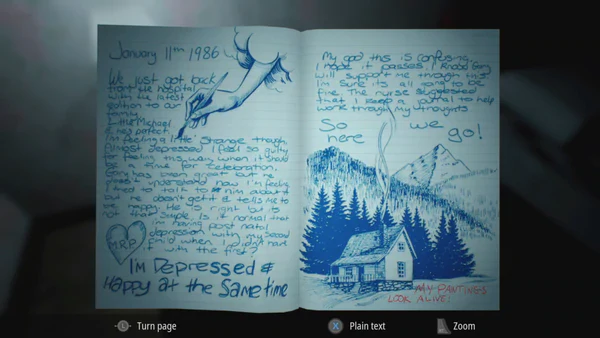 January 11th 1986
We just got back
from the hospital
with the latest
edition to our
family
Little Michael
& he's perfect.
I'm feeling a little strange though,
Almost depressed. I feel so guilty
for feeling this way when it should
be a time for celebration.
Gary has been great but
understand how I'm feeling.
I tried to talk to him about it
but he doesn't get it & tells me to
be happy. He is right but its
not that simple. Is it normal that
I'm having post natal
depression with my second
child when I didn't have
it with the first?
M.R.P
I'M Depressed &
Happy at the Same time
My god this is confusing,
I hope it passes. I know Gary
will support me through this
I'm sure its all going to be
fine. The nurse suggested
that I keep a journal to help
work through my thoughts.
So we
here go!
MY PANTINGS
LOOK ALIVE!
L Turn page
X Plain text
Zoom